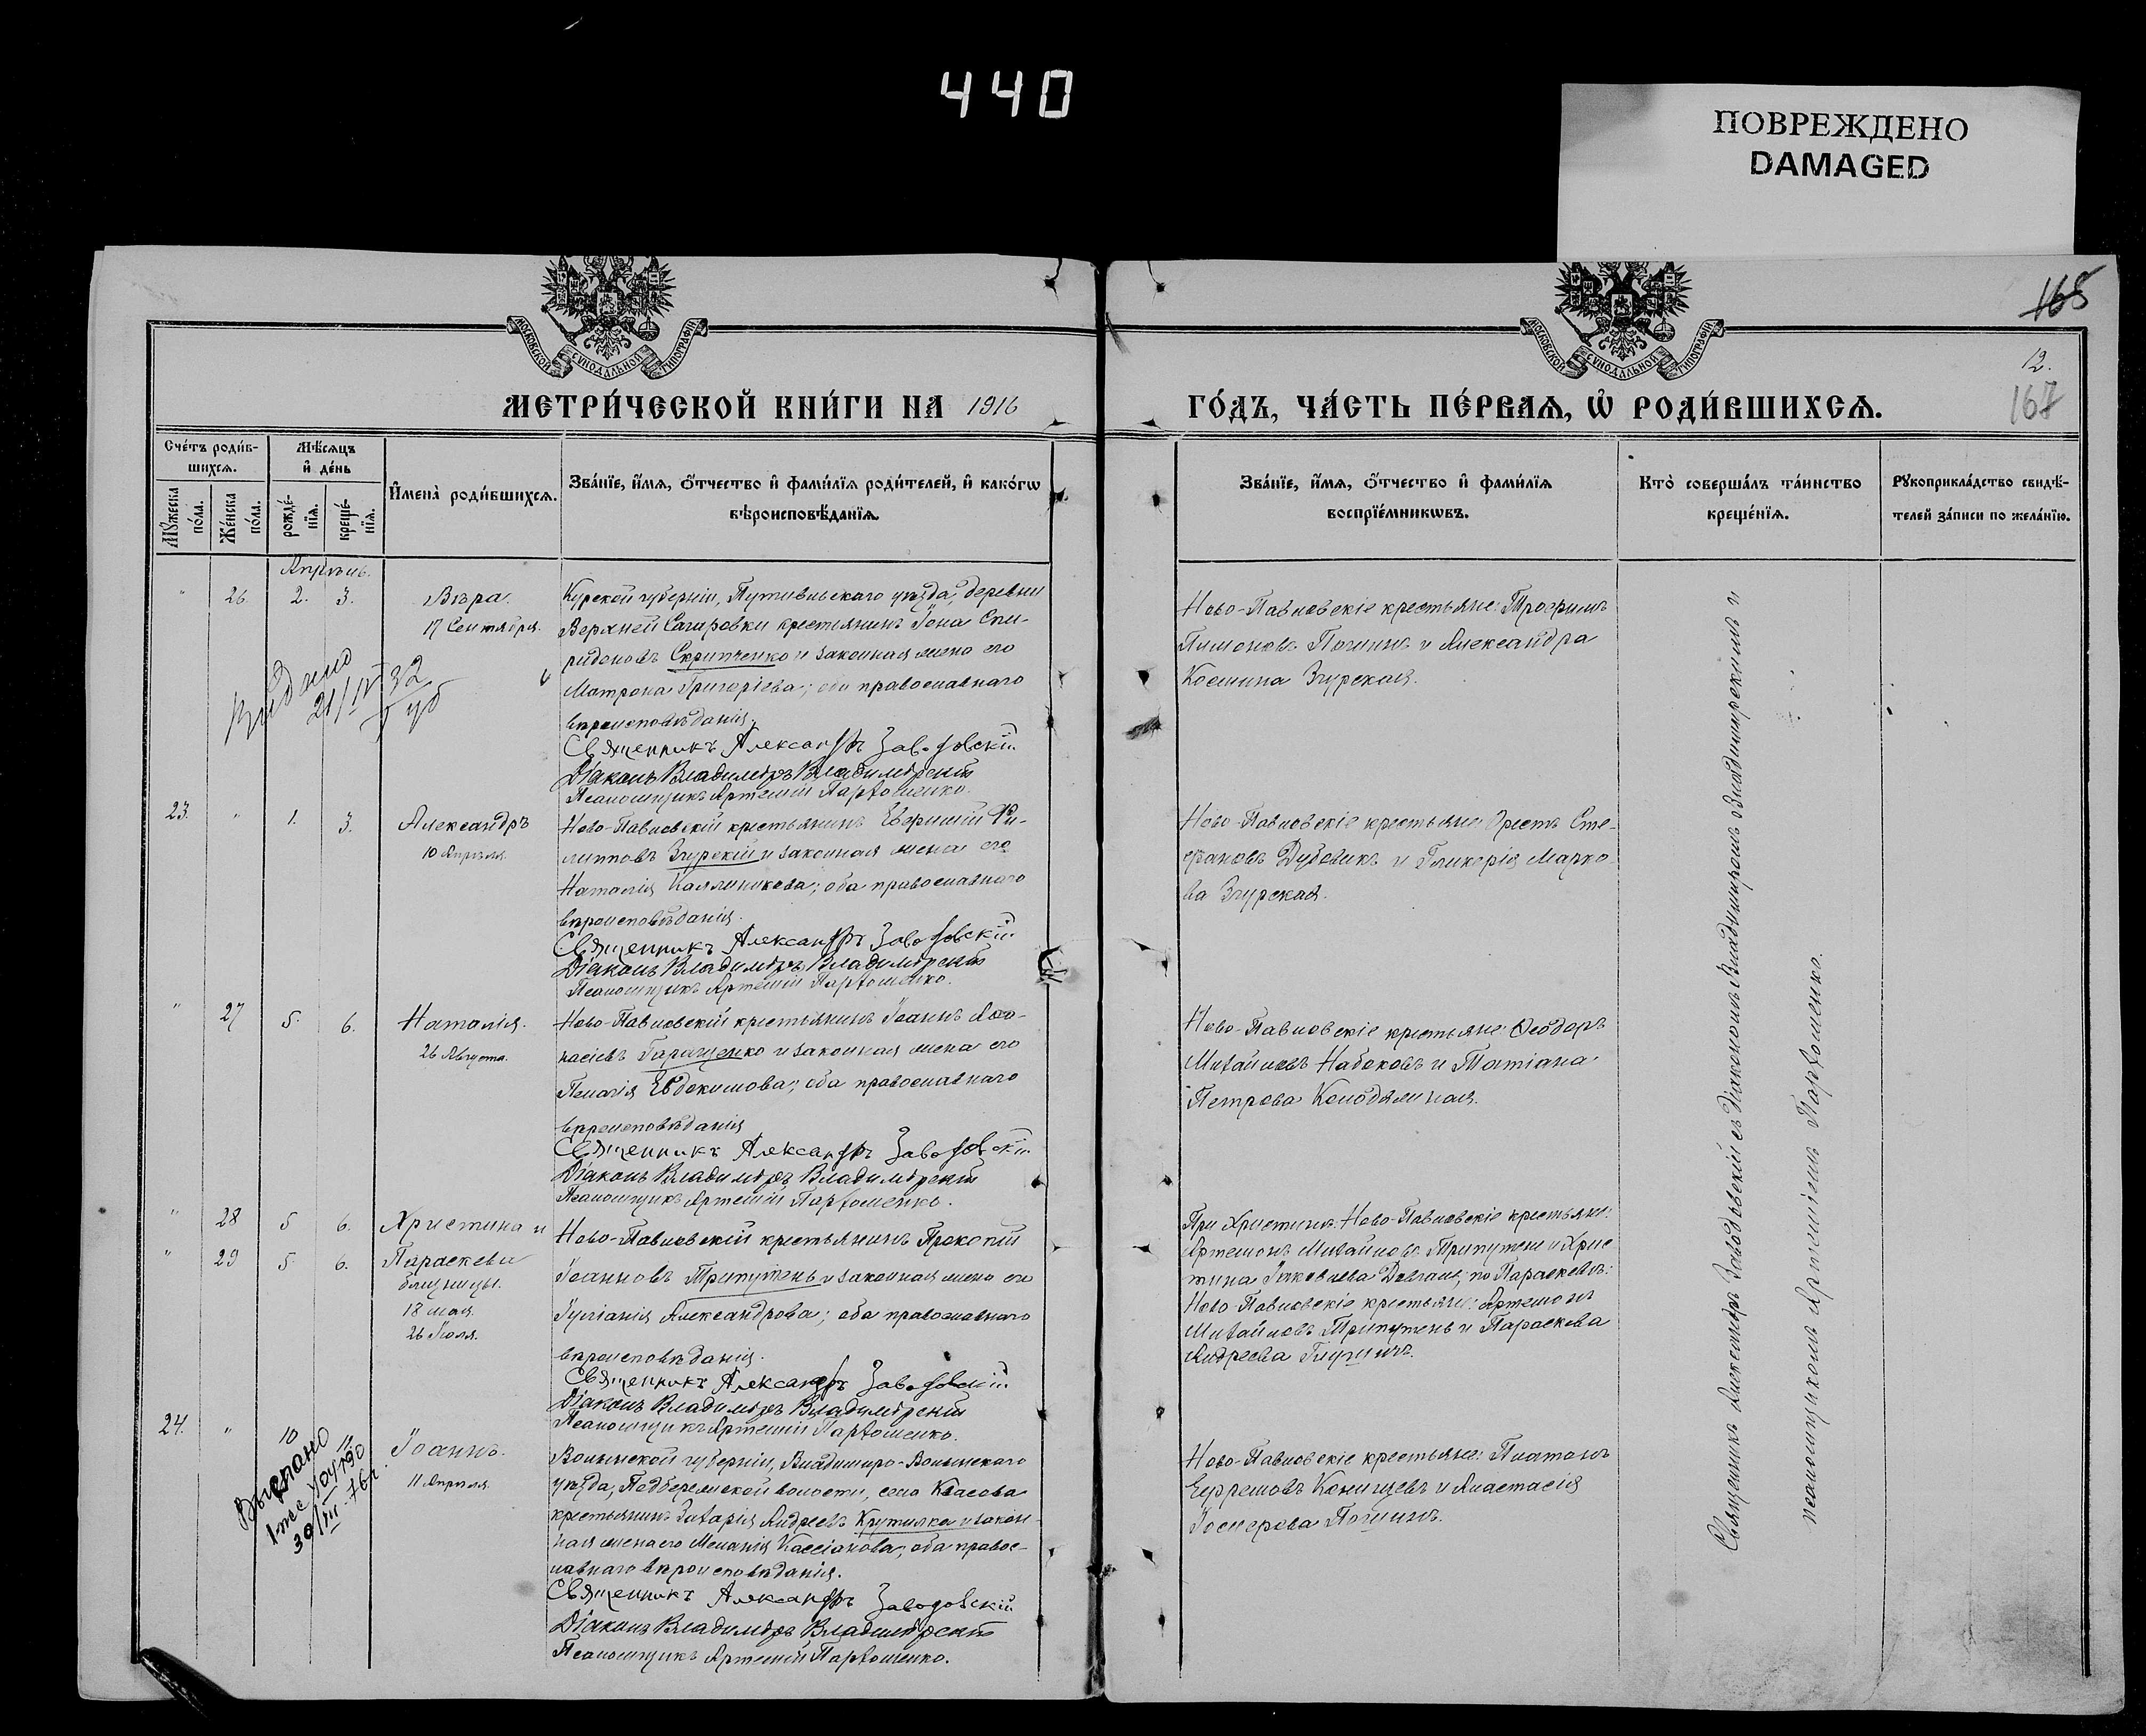 440
ПОВРЕЖДЕНО
DAMAGED
165
12.
167
МОСКОВСКОЙ СѴНОДАЛЬНОЙ ТИПОГРАФІИ
МОСКОВСКОЙ СѴНОДАЛЬНОЙ ТИПОГРАФІИ
МЕТРИ́ЧЕСКОЙ КНИ́ГИ НА 1916
ГО́ДЪ, ЧА́СТЬ ПЕ́РВАѦ, Ѡ҆ РОДИ́ВШИХСѦ.
Сче́тъ роди́в-
шихсѧ.
Мꙋ́жеска по́ла.
Же́нска по́ла.
Мѣ́сѧцъ
и҆ де́нь
рожде́-
нїѧ.
креще́-
нїѧ.
И҆мена̀ роди́вшихсѧ.
Зва́нїе, и҆́мѧ, ѻ҆́тчество и҆ фами́лїѧ роди́телей, и҆ како́гѡ
вѣроисповѣ́данїѧ.
Зва́нїе, и҆́мѧ, ѻ҆́тчество и҆ фами́лїѧ
воспрїе́мникѡвъ.
Кто̀ соверша́лъ та́инство
креще́нїѧ.
Рꙋкоприкла́дство свидѣ́-
телей за́писи по жела́нїю.
Апрѣль.
" 26. 2. 3. Вѣра.
17 Сентября.
Курской губерніи, Путивльскаго уѣзда, деревни
Верхней Сагаровки крестьянинъ Іона Спи-
ридоновъ Скрипченко и законная жена его
Матрона Григоріева; оба православнаго
вѣроисповѣданія.
Священникъ Александръ Заводовскій
Діаконъ Владиміръ Владимірскій
Псаломщикъ Артемій Пархоменко.
Ново-Павловскіе крестьяне: Трофимъ
Пошинъ и Александра
Згурская.
Видано
21/IV 32
23. " 1. 3. Александръ
10 Апрѣля.
Ново-Павловскій крестьянинъ Евфимій Фи-
липповъ Згурскій и законная жена его
Наталія Каллиникова; оба православнаго
вѣроисповѣданія.
Священникъ Александръ Заводовскій
Діаконъ Владиміръ Владимірскій
Псаломщикъ Артемій Пархоменко.
Ново-Павловскіе крестьяне: Орестъ Сте-
фановъ Дубовикъ и Гликерія Марко-
ва Згурская.
" 27 5. 6. Наталія.
26 Августа.
Ново-Павловскій крестьянинъ Іоаннъ Аѳа-
насіевъ Гаращенко и законная жена его
Пелагія Евдокимова; оба православнаго
вѣроисповѣданія
Священникъ Александръ Заводовскій
Діаконъ Владиміръ Владимірскій
Псаломщикъ Артемій Пархоменко.
Ново-Павловскіе крестьяне: Ѳеодоръ
Михайловъ Набоковъ и Татіана
Петрова Колодяжная.
" 28 5 6. Христина и
" 29 5. 6. Параскева
близницы.
18 мая.
26 Іюля.
Ново-Павловскій крестьянинъ Прокопій
Іоанновъ Трипутень и законная жена его
Іуліанія Александрова; оба православнаго
вѣроисповѣданія.
Священникъ Александръ Заводовскій
Діаконъ Владиміръ Владимірскій
Псаломщикъ Артемій Пархоменко.
При Христинѣ: Ново-Павловскіе крестьяне:
Артемонъ Михайловъ Трипутень и Хрис-
тина Іаковлева Довгаль; по Параскевѣ:
Ново-Павловскіе крестьяне: Артемонъ
Михайловъ Трипутень и Параскева
Андреева
24. " 10 11 Іоаннъ.
11 Апрѣля.
Волынской губерніи, Владиміро-Волынскаго
уѣзда, Подберезской волости, села Квасова
крестьянинъ Захарія Андреевъ Крутилка и закон-
ная жена его Меланія Кассіанова; оба правос-
лавнаго вѣроисповѣданія.
Священникъ Александръ Заводовскій
Діаконъ Владиміръ Владимірскій
Псаломщикъ Артемій Пархоменко.
Ново-Павловскіе крестьяне: Платонъ
Ефремовъ Конищевъ и Анастасія
Іосифова Пошинъ.
30/III-76г.
Священникъ Александръ Заводовскій съ Діакономъ Владиміромъ Владимірскимъ и
псаломщикомъ Артеміемъ Пархоменко.